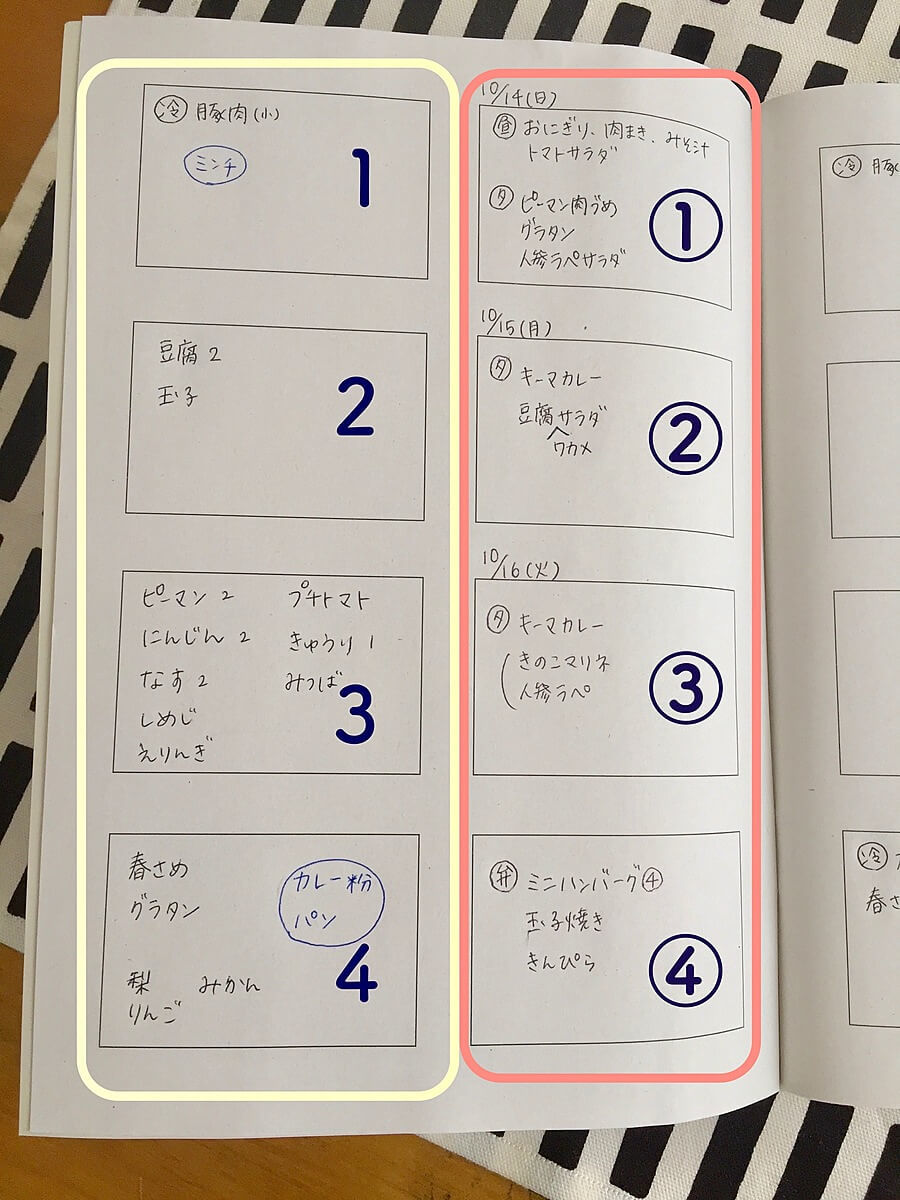 冷 豚肉(小)
ミンチ
1
豆腐 2
玉子
2
ピーマン 2 プチトマト
にんじん 2 きゅうり 1
なす 2 みつば
しめじ
えりんぎ
3
春さめ
グラタン
カレー粉
パン
梨 みかん
りんご
4
10/14(日)
昼 おにぎり、肉まき、みそ汁
トマトサラダ
夕 ピーマン肉づめ
グラタン
人参ラペサラダ
①
10/15(月)
夕 キーマカレー
豆腐サラダ
ワカメ
②
10/16(火)
夕 キーマカレー
きのこマリネ
人参ラペ
③
弁 ミニハンバーグ④
玉子焼き
きんぴら
④
冷 豚
冷
春さ